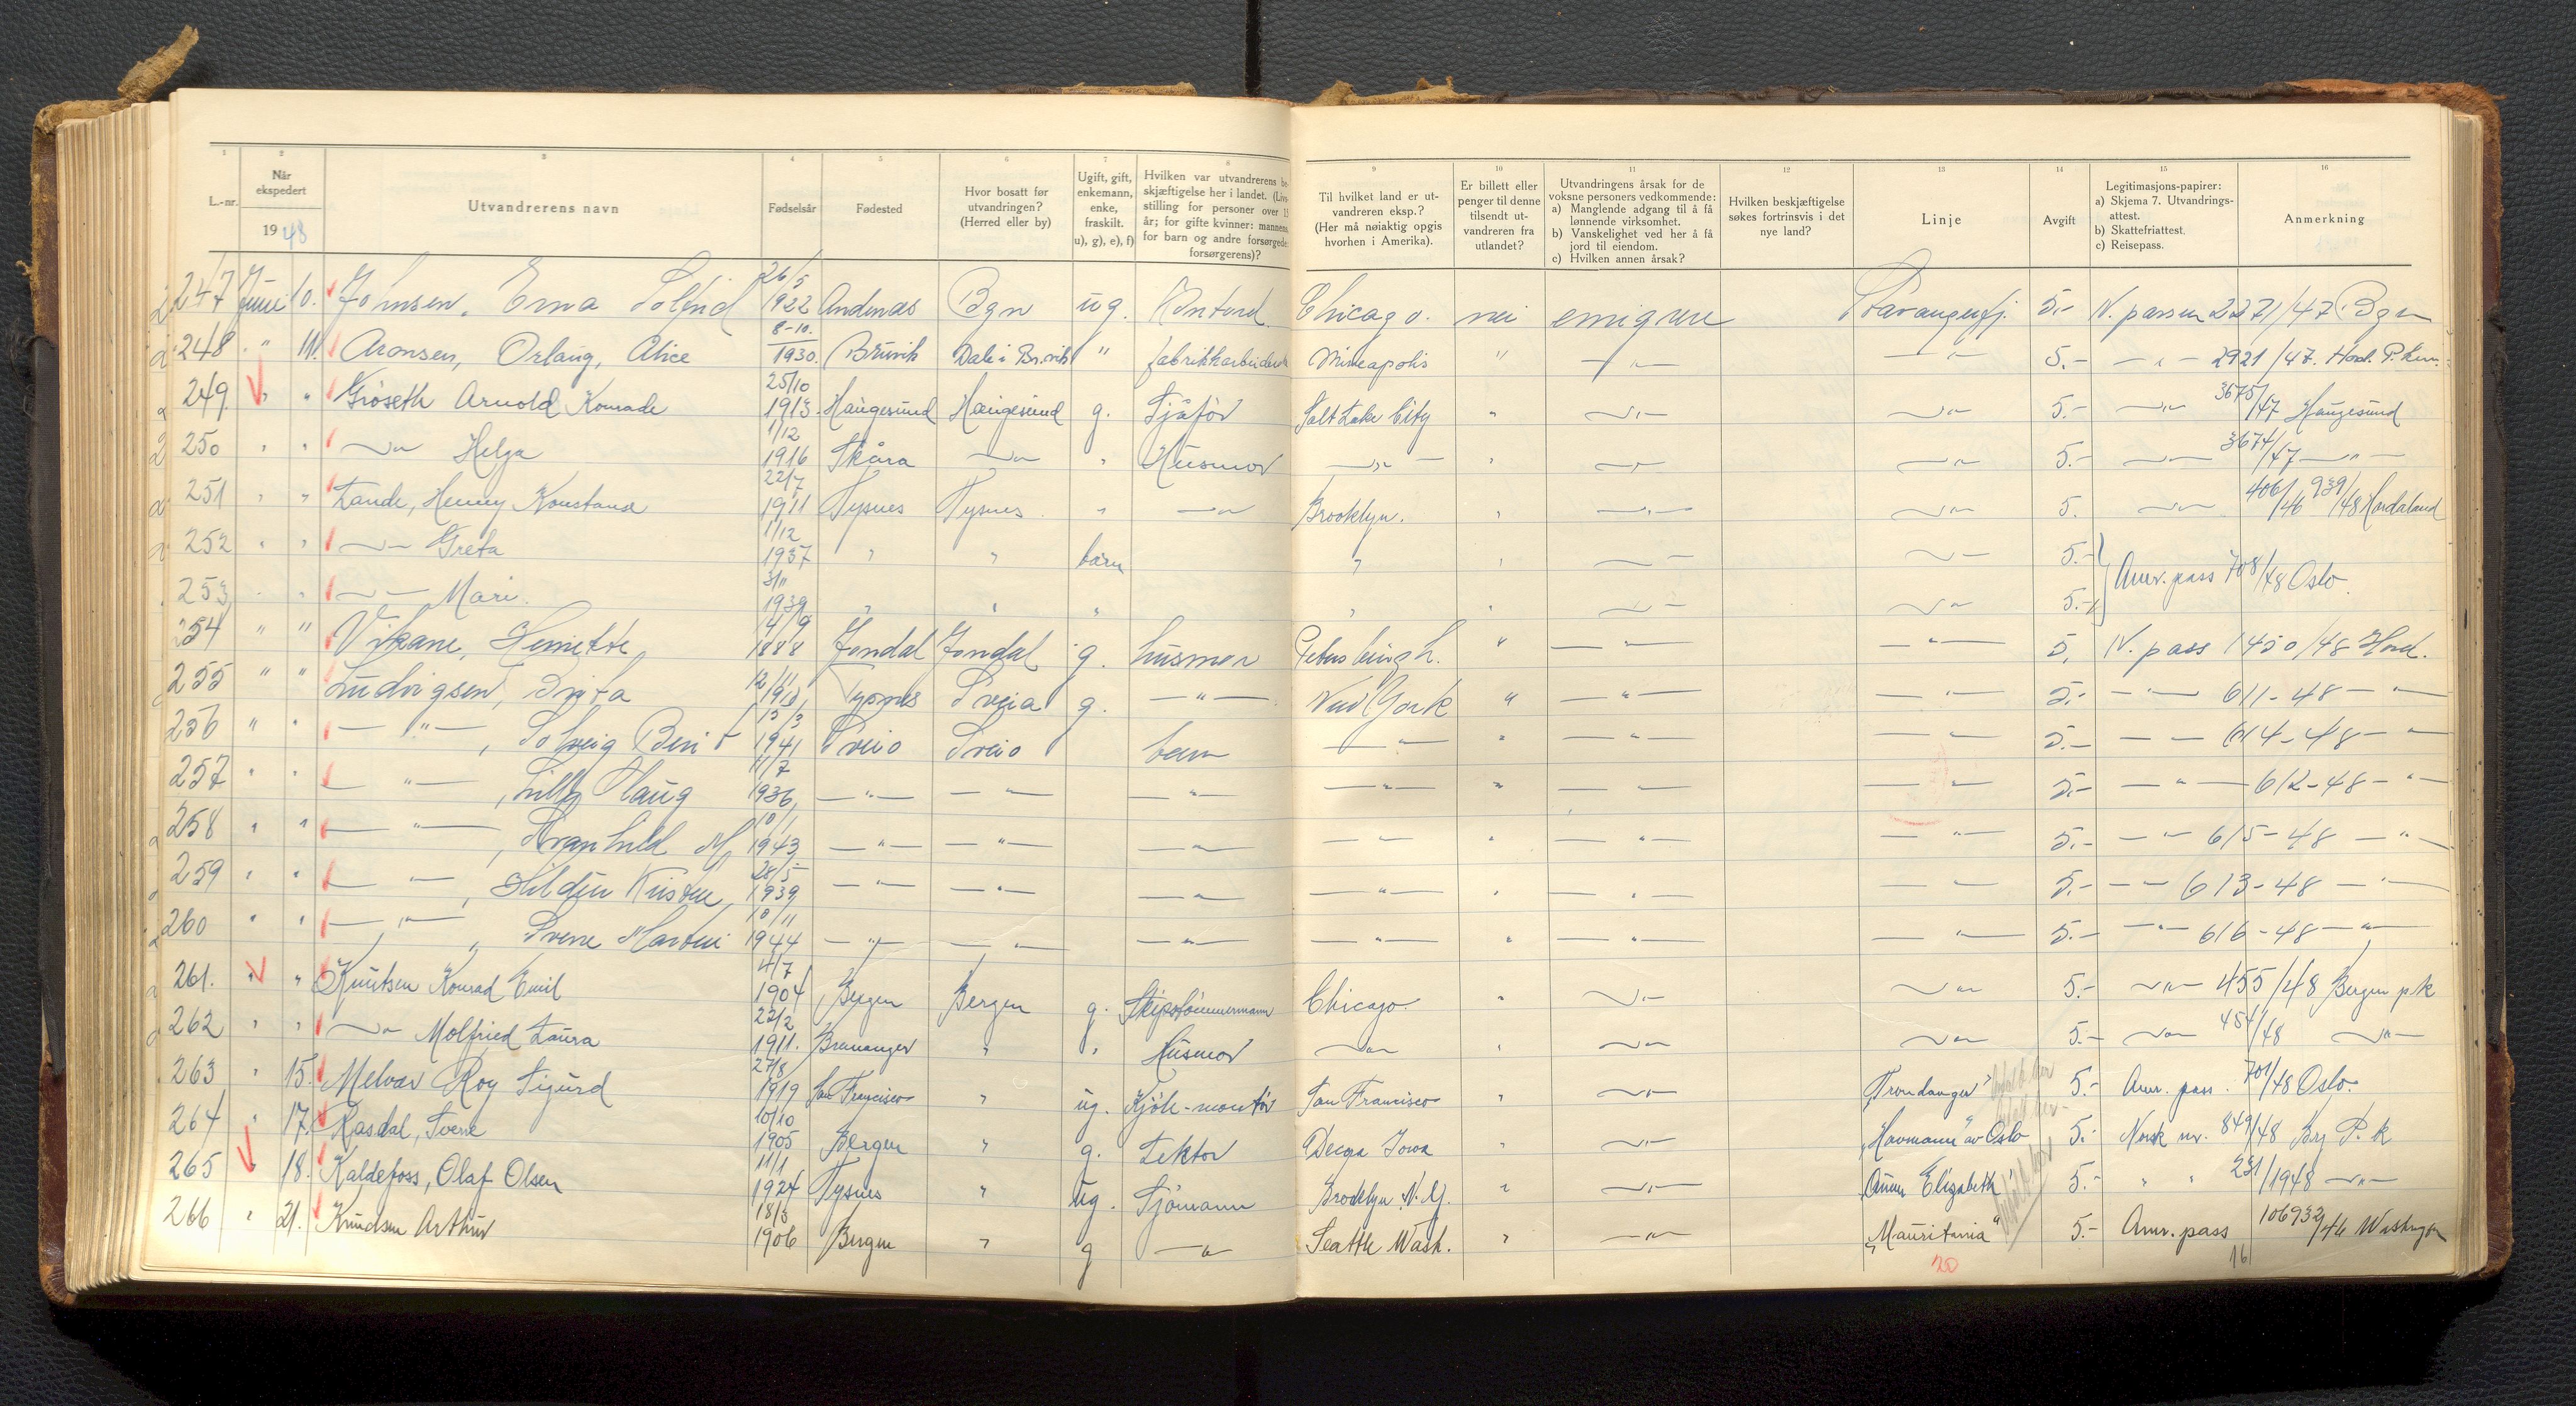 1 2 3 4 5 6 7 8 9 10 11 12 13 14 15 16
L.-nr. Når ekspedert 1948 Utvandrerens navn Fødselsår Fødested Hvor bosatt før utvandringen? (Herred eller by) Ugift, gift, enkemann, enke, fraskilt. u), g), e), f) Hvilken var utvandrerens be- skjæftigelse her i landet. (Livs- stilling for personer over 15 år; for gifte kvinner: mannens, for barn og andre forsørgede: forsørgerens)? Til hvilket land er ut- vandreren eksp.? (Her må nøiaktig opgis hvorhen i Amerika). Er billett eller penger til denne tilsendt ut- vandreren fra utlandet? Utvandringens årsak for de voksne personers vedkommende: a) Manglende adgang til å få lønnende virksomhet. b) Vanskelighet ved her å få jord til eiendom. c) Hvilken annen årsak? Hvilken beskjæftigelse søkes fortrinsvis i det nye land? Linje Avgift Legitimasjons-papirer: a) Skjema 7. Utvandrings- attest. b) Skattefriattest. c) Reisepass. Anmerkning
247 Juni 10. Johnsen, Erna Solfrid 26/5 1922 Andenæs Bgn ug. Kontord. Chicago. nei emigrere Stavangerfj. 5.- N. passnr 2271/47 Bgn
248 " 11. Aronsen, Orlaug, Alice 8-10. 1930. Bruvik Dale i Br.vik " fabrikkarbeider Mineapolis " — " — — " — 5.- — " — 2921/47. Hord. P.kam.
249. " " Grøseth Arnold Konrade 25/10 1913. Haugesund Haugesund g. Sjåfør Salt Lake City " — " — — " — 5.- — " — 3675/47 Haugesund
250 " " — " — Helga 1/12 1916 Skåra — " — " Husmor — " — " — " — — " — 5.- — " — 3674/47 — " —
251 " " Lande, Henny Konstanse 22/7 1911 Tysnes Tysnes " — " — Brooklyn. " — " — — " — 5. — " — 406/46 939/48 Hordaland
252 " " — " — Greta 1/12 1937 " " barn " " — " — — " — 5.-
253 " " — " — Mari. 3/11 1939 " " " " " — " — — " — 5.- Amr. pass 708/48 Oslo.
254 " " Vikane, Henrikke, 4/9 1888 Jondal Jondal g. husmor Petersburgh. " — " — — " — 5, N. pass 1450/48 Hord.
255 " " Ludvigsen, Drifa 12/11 1913, Tysnes Sveio g. — " — New York " — " — — " — 5.- — " — 611-48 — " —
256 " " — " —, Solveig Berit 15/3 1941 Sveio Sveio barn — " — " — " — — " — 5.- — " — 614-48 — " —
257 " " — " —, Lilly Haug 11/7 1936, — " — — " — — " — — " — " — " — — " — 5.- — " — 612-48 — " —
258 " " — " —, Aranhild M, 10/1 1943 — " — — " — — " — — " — " — " — — " — 5.- — " — 615-48 — " —
259 " " — " —, Hildur Kristine, 28/5 1939 — " — — " — — " — — " — " — " — — " — 5.- — " — 613-48 — " —
260 " " — " —, Sverre Martin 10/11 1944 — " — — " — — " — — " — " — " — — " — 5.- — " — 616-48 — " —
261. " " Knutsen Konrad Emil 4/7 1904 Bergen Bergen g. Skipstømmermann Chicago. " — " — — " — 5.- — " — 455/48 Bergen p.k
262 " " — " — Molfried Laura 22/2 1911. Brananger " " Husmor — " — " — " — — " — 5.- — " — 454/48 — " —
263 " 15. Melvær Roy Sigurd 27/8 1919 San Francisco " ug. Kjøle-montør San Francisco " — " — "Trondanger" 5.- Amr. pass. 701/48 Oslo.
264 " 17. Rasdal, Sverre 10/10 1905 Bergen " g. Lektor Decora Iowa " — " — "Havmann" av Oslo 5.- Norsk nr. 849/48 Brg P.k
265 " 18. Kaldefoss, Olaf Olsen 11/1 1924 Tysnes " ug. Sjømann Brooklyn N.Y. " — " — "Anna Elizabeth" 5.- " " 231/1948 — " —
266 " 21. Knudsen Arthur 18/3 1906 Bergen " g — " — Seattle Wash. " — " — "Mauritania" 5.- Amr. pass 106932/46 Washington
20 16